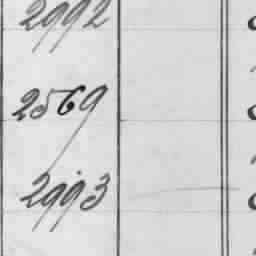 2992
2569
2993